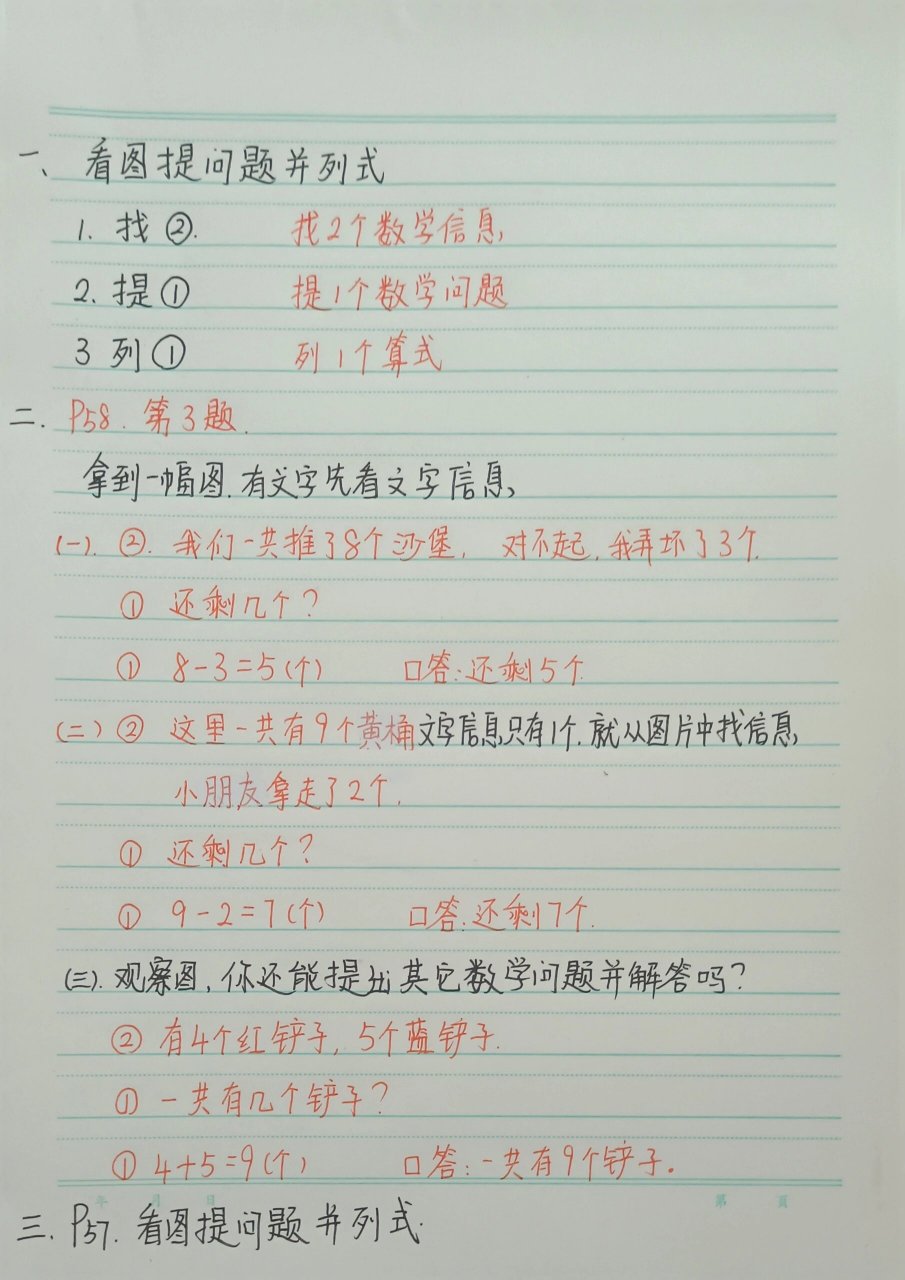 一、看图提问题并列式
1. 找②. 找2个数学信息
2. 提① 提1个数学问题
3 列① 列1个算式
二. P58. 第3题.
拿到一幅图.有文字先看文字信息,
(一). ②. 我们一共推了8个沙堡, 对不起,我弄坏了3个.
① 还剩几个?
① 8-3=5(个) 口答:还剩5个.
(二) ② 这里一共有9个黄桶文字信息只有1个.就从图片中找信息,
小朋友拿走了2个.
① 还剩几个?
① 9-2=7(个) 口答:还剩7个.
(三). 观察图,你还能提出其它数学问题并解答吗?
② 有4个红铲子, 5个蓝铲子.
① 一共有几个铲子?
① 4+5=9(个) 口答:一共有9个铲子.
年 月 日 第 頁
三. P57. 看图提问题并列式.